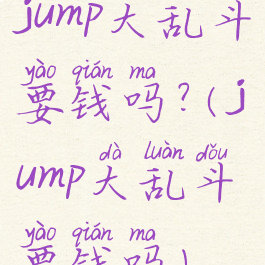 jump大乱斗
yào qián ma
要钱吗？(j
dà luàn dǒu
ump大乱斗
yào qián ma
要钱吗)